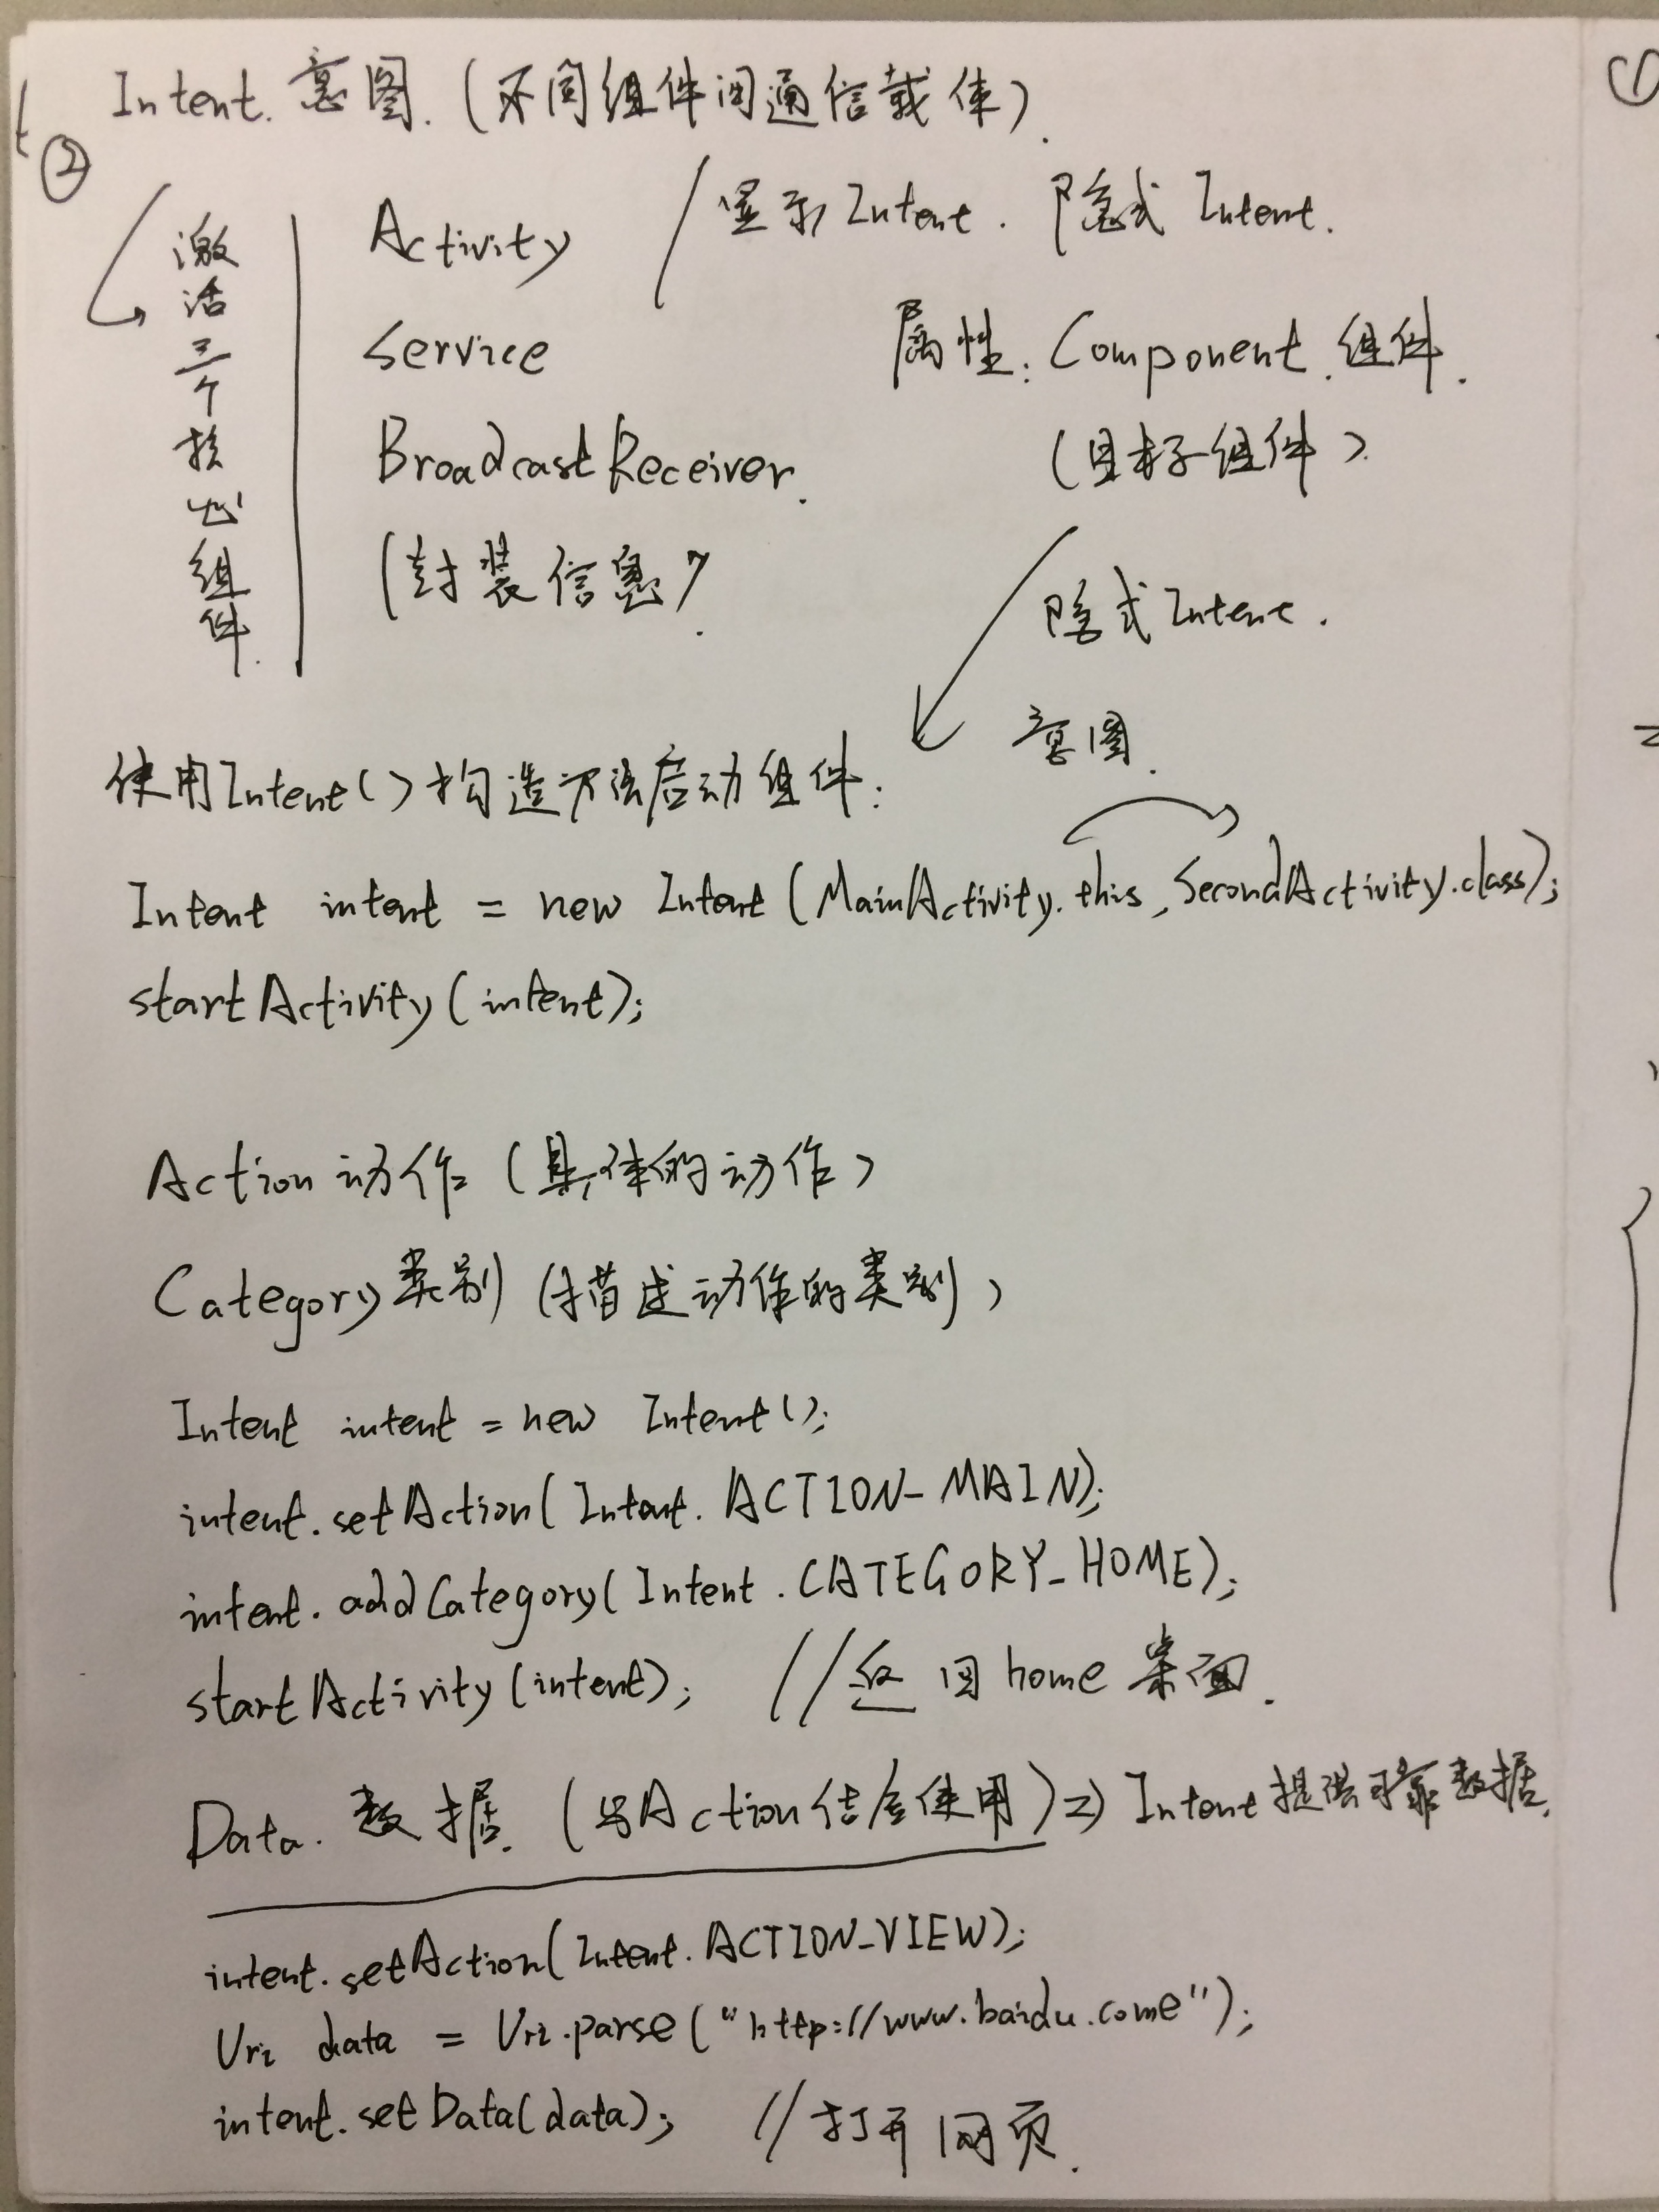 Intent. 意图. (不同组件间通信载体).
②
激活三个核心组件.
Activity
Service
BroadcastReceiver.
(封装信息).
显示Intent. 隐式Intent.
属性: Component. 组件.
(目标组件)
隐式Intent.
意图.
使用Intent()构造方法启动组件:
Intent intent = new Intent (MainActivity.this, SecondActivity.class);
startActivity(intent);
Action 动作 (具体的动作)
Category类别 (描述动作的类别)
Intent intent = new Intent();
intent.setAction(Intent.ACTION_MAIN);
intent.addCategory(Intent.CATEGORY_HOME);
startActivity(intent); //返回home桌面.
Data. 数据. (与Action结合使用) => Intent提供可靠数据.
intent.setAction(Intent.ACTION_VIEW);
Uri data = Uri.parse("http://www.baidu.come");
intent.setData(data); //打开网页.
①